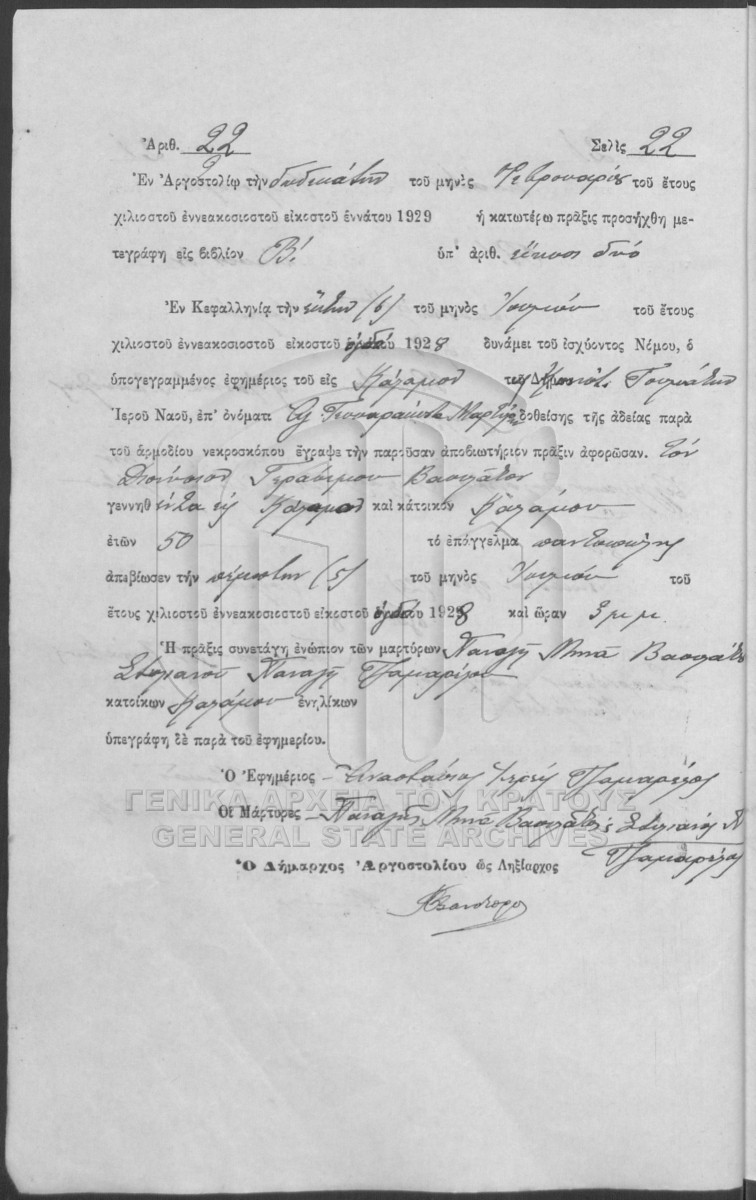 Ἀριθ. 22 Σελὶς 22
Ἐν Ἀργοστολίῳ τὴν δωδεκάτην τοῦ μηνὸς Φεβρουαρίου τοῦ ἔτους
χιλιοστοῦ ἐννεακοσιοστοῦ εἰκοστοῦ ἐννάτου 1929 ἡ κατωτέρω πρᾶξις προσήχθη με-
τεγράφη εἰς βιβλίον Β! ὑπ' ἀριθ. εἴκοσι δυό
Ἐν Κεφαλληνίᾳ τὴν ἕκτην (6) τοῦ μηνὸς Ἰουνίου τοῦ ἔτους
χιλιοστοῦ ἐννεακοσιοστοῦ εἰκοστοῦ ὀγδόου 1928 δυνάμει τοῦ ἰσχύοντος Νόμου, ὁ
ὑπογεγραμμένος ἐφημέριος τοῦ εἰς Κάλαμον τῆς Κοινότ.
Ἱεροῦ Ναοῦ, ἐπ' ὀνόματι Ἁγ. Τεσσαράκοντα Μαρτύρων δοθείσης τῆς ἀδείας παρὰ
τοῦ ἁρμοδίου νεκροσκόπου ἔγραψε τὴν παροῦσαν ἀποβιωτήριον πρᾶξιν ἀφορῶσαν. τὸν
Διονύσιον Γεράσιμου Βασιλᾶτον
γεννηθέντα εἰς Κάλαμον καὶ κάτοικον Καλάμου
ἐτῶν 50 τὸ ἐπάγγελμα παντοπώλης
ἀπεβίωσεν τὴν πέμπτην (5) τοῦ μηνὸς Ἰουνίου τοῦ
ἔτους χιλιοστοῦ ἐννεακοσιοστοῦ εἰκοστοῦ ὀγδόου 1928 καὶ ὥραν 3 μ.μ.
Ἡ πρᾶξις συνετάγη ἐνώπιον τῶν μαρτύρων Παναγῆ Μηνᾶ Βασιλᾶτου
Στυλιανοῦ Παναγῆ Τζαμαρέλου
κατοίκων Καλάμου ἐνηλίκων
ὑπεγράφη δὲ παρὰ τοῦ ἐφημερίου.
Ὁ Ἐφημέριος – Ἀναστάσιος Ἱερεύς Τζαμαρέλος
ΓΕΝΙΚΑ ΑΡΧΕΙΑ ΤΟΥ ΚΡΑΤΟΥΣ
Οἱ Μάρτυρες – Παναγῆς Μηνᾶ Βασιλᾶτος Στυλιανός Π
GENERAL STATE ARCHIVES
Τζαμαρέλος
Ὁ Δήμαρχος Ἀργοστολίου ὡς Ληξίαρχος